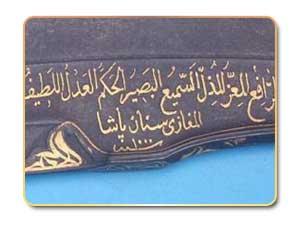 الرافع المعز المذل السميع البصير الحكم العدل اللطيف
المغازی سنان پاشا